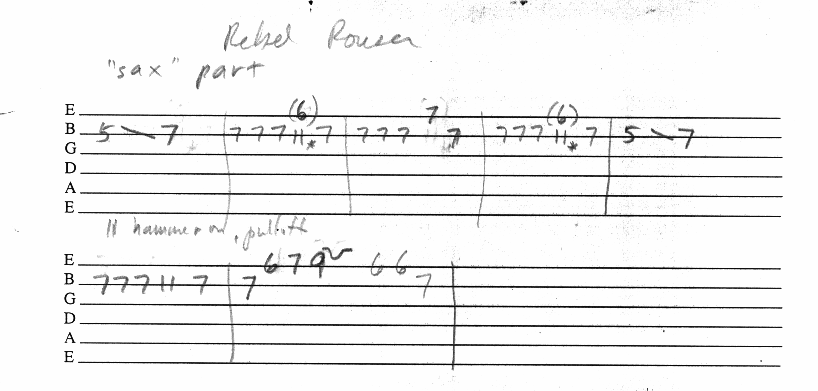 Rebel Rouser
"sax" part
(6) 7 (6)
E
B 5 7 7 7 7 11 * 7 7 7 7 7 7 7 7 11 * 7 5 7
G
D
A
E
11 hammer on, pulloff
E 6 7 9 6 6
B 7 7 7 11 7 7 7
G
D
A
E